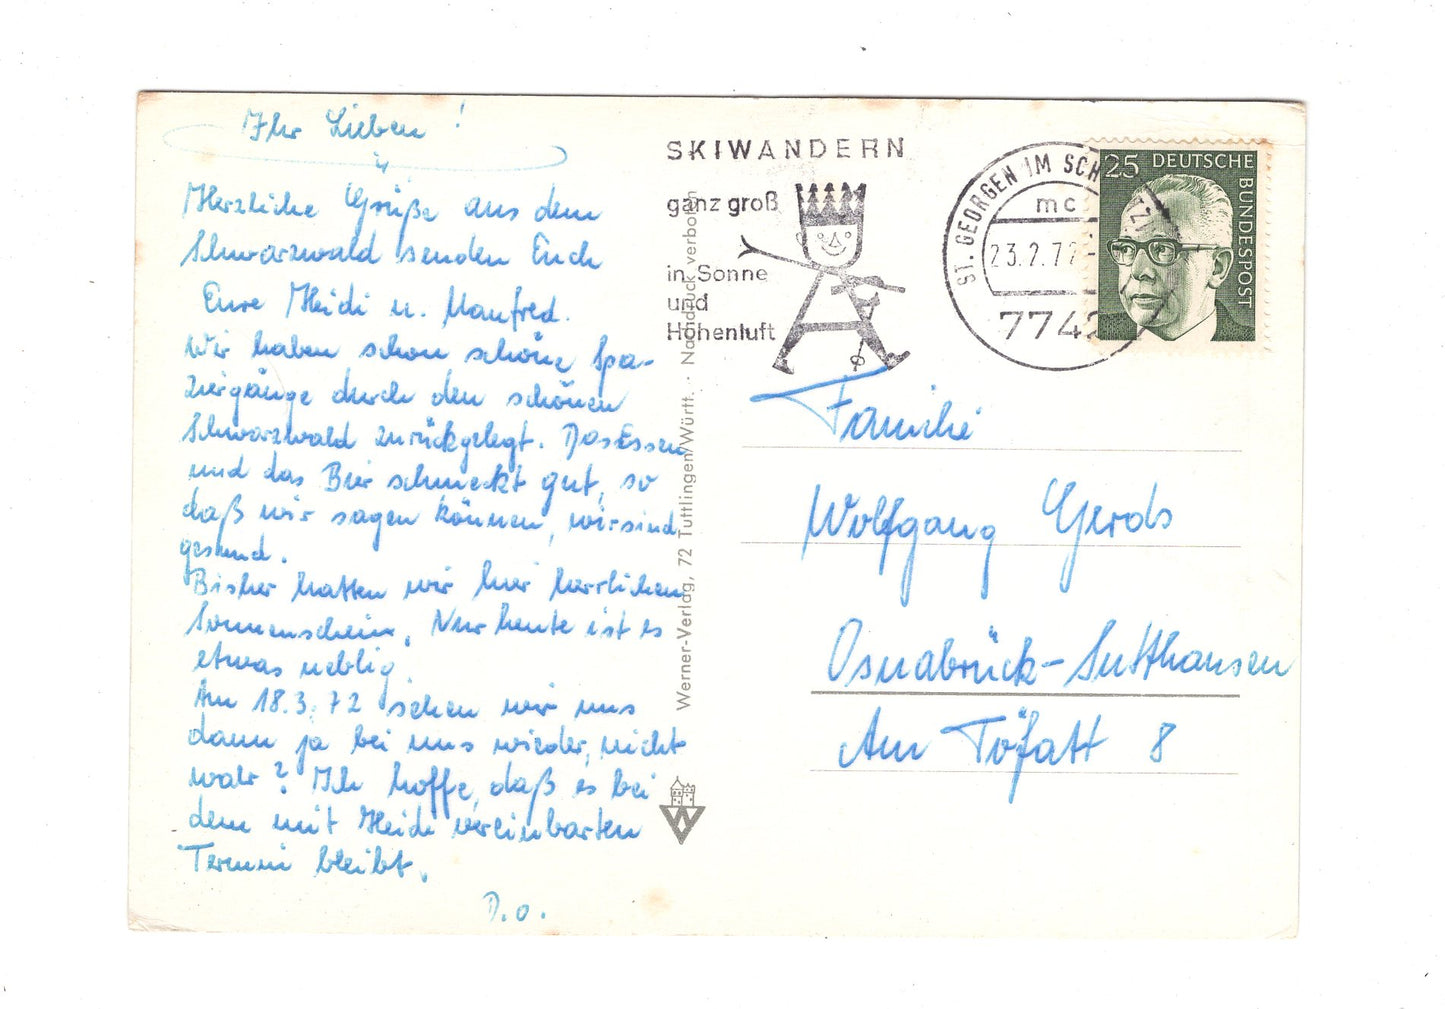 Ihr Lieben!
Herzliche Grüße aus dem
Schwarzwald senden Euch
Eure Heidi u. Manfred.
Wir haben schon schöne Spa-
ziergänge durch den schönen
Schwarzwald zurückgelegt. Das Essen
und das Bier schmeckt gut, so
daß wir sagen können, wir sind
gesund.
Bisher hatten wir hier herrlichen
Sonnenschein. Nur heute ist es
etwas neblig.
Am 18.3.72 sehen wir uns
dann ja bei uns wieder, nicht
wahr? Ich hoffe, daß es bei
dem mit Heidi vereinbarten
Termin bleibt.
D.O.
Werner-Verlag, 72 Tuttlingen/Württ. · Nachdruck verboten
W
SKIWANDERN
ganz groß
in Sonne
und
Höhenluft
ST. GEORGEN IM SCH
mc
23.2.72
7742
25 DEUTSCHE
BUNDESPOST
Familie
Wolfgang Gerds
Osnabrück-Sutthausen
Am Töfatt 8